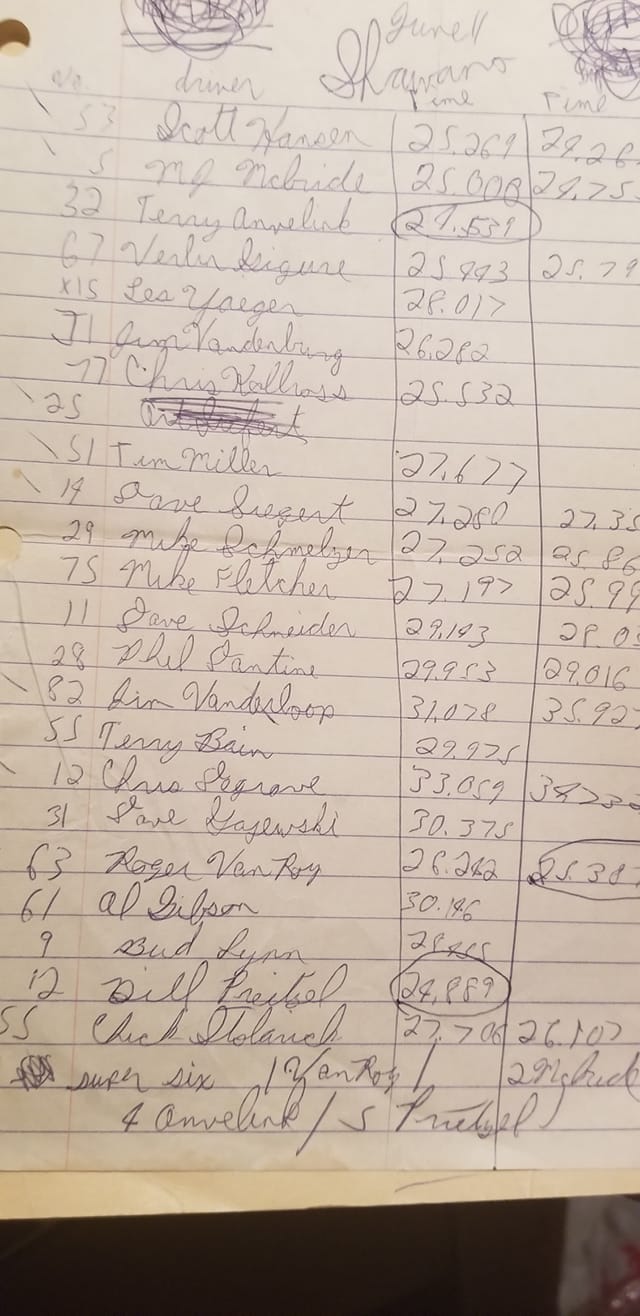 June 11
Shawano
No. driver Time Time
53 Scott Hansen 25.269 24.26
5 MJ McBride 25.008 24.75
32 Terry Anvelink 24.539
67 Verlin 25.443 25.79
X15 Les Yaeger 28.017
J1 Jim Vandenburg 26.282
77 Chris Kallhoss 25.532
25
51 Tim Miller 27.677
14 Dave Siegert 27.280 27.35
29 Mike Schmelzer 27.252 25.86
75 Mike Fletcher 27.197 25.99
11 Dave Schneider 29.143 28.03
28 Phil Santine 29.953 29.016
82 Jim Vanderloop 31.078 35.927
55 Terry Bain 29.975
12 Chris 33.059 34232
31 Dave Gajewski 30.375
63 Roger VanRoy 26.242 25.387
61 Al Gibson 30.146
9 Bud Lynn
12 Bill Preitzel 24.889
55 Chuck Stolarick 27.706 26.107
super six 1 VanRoy / 2 McBride
4 Anvelink / 5 Prietzel